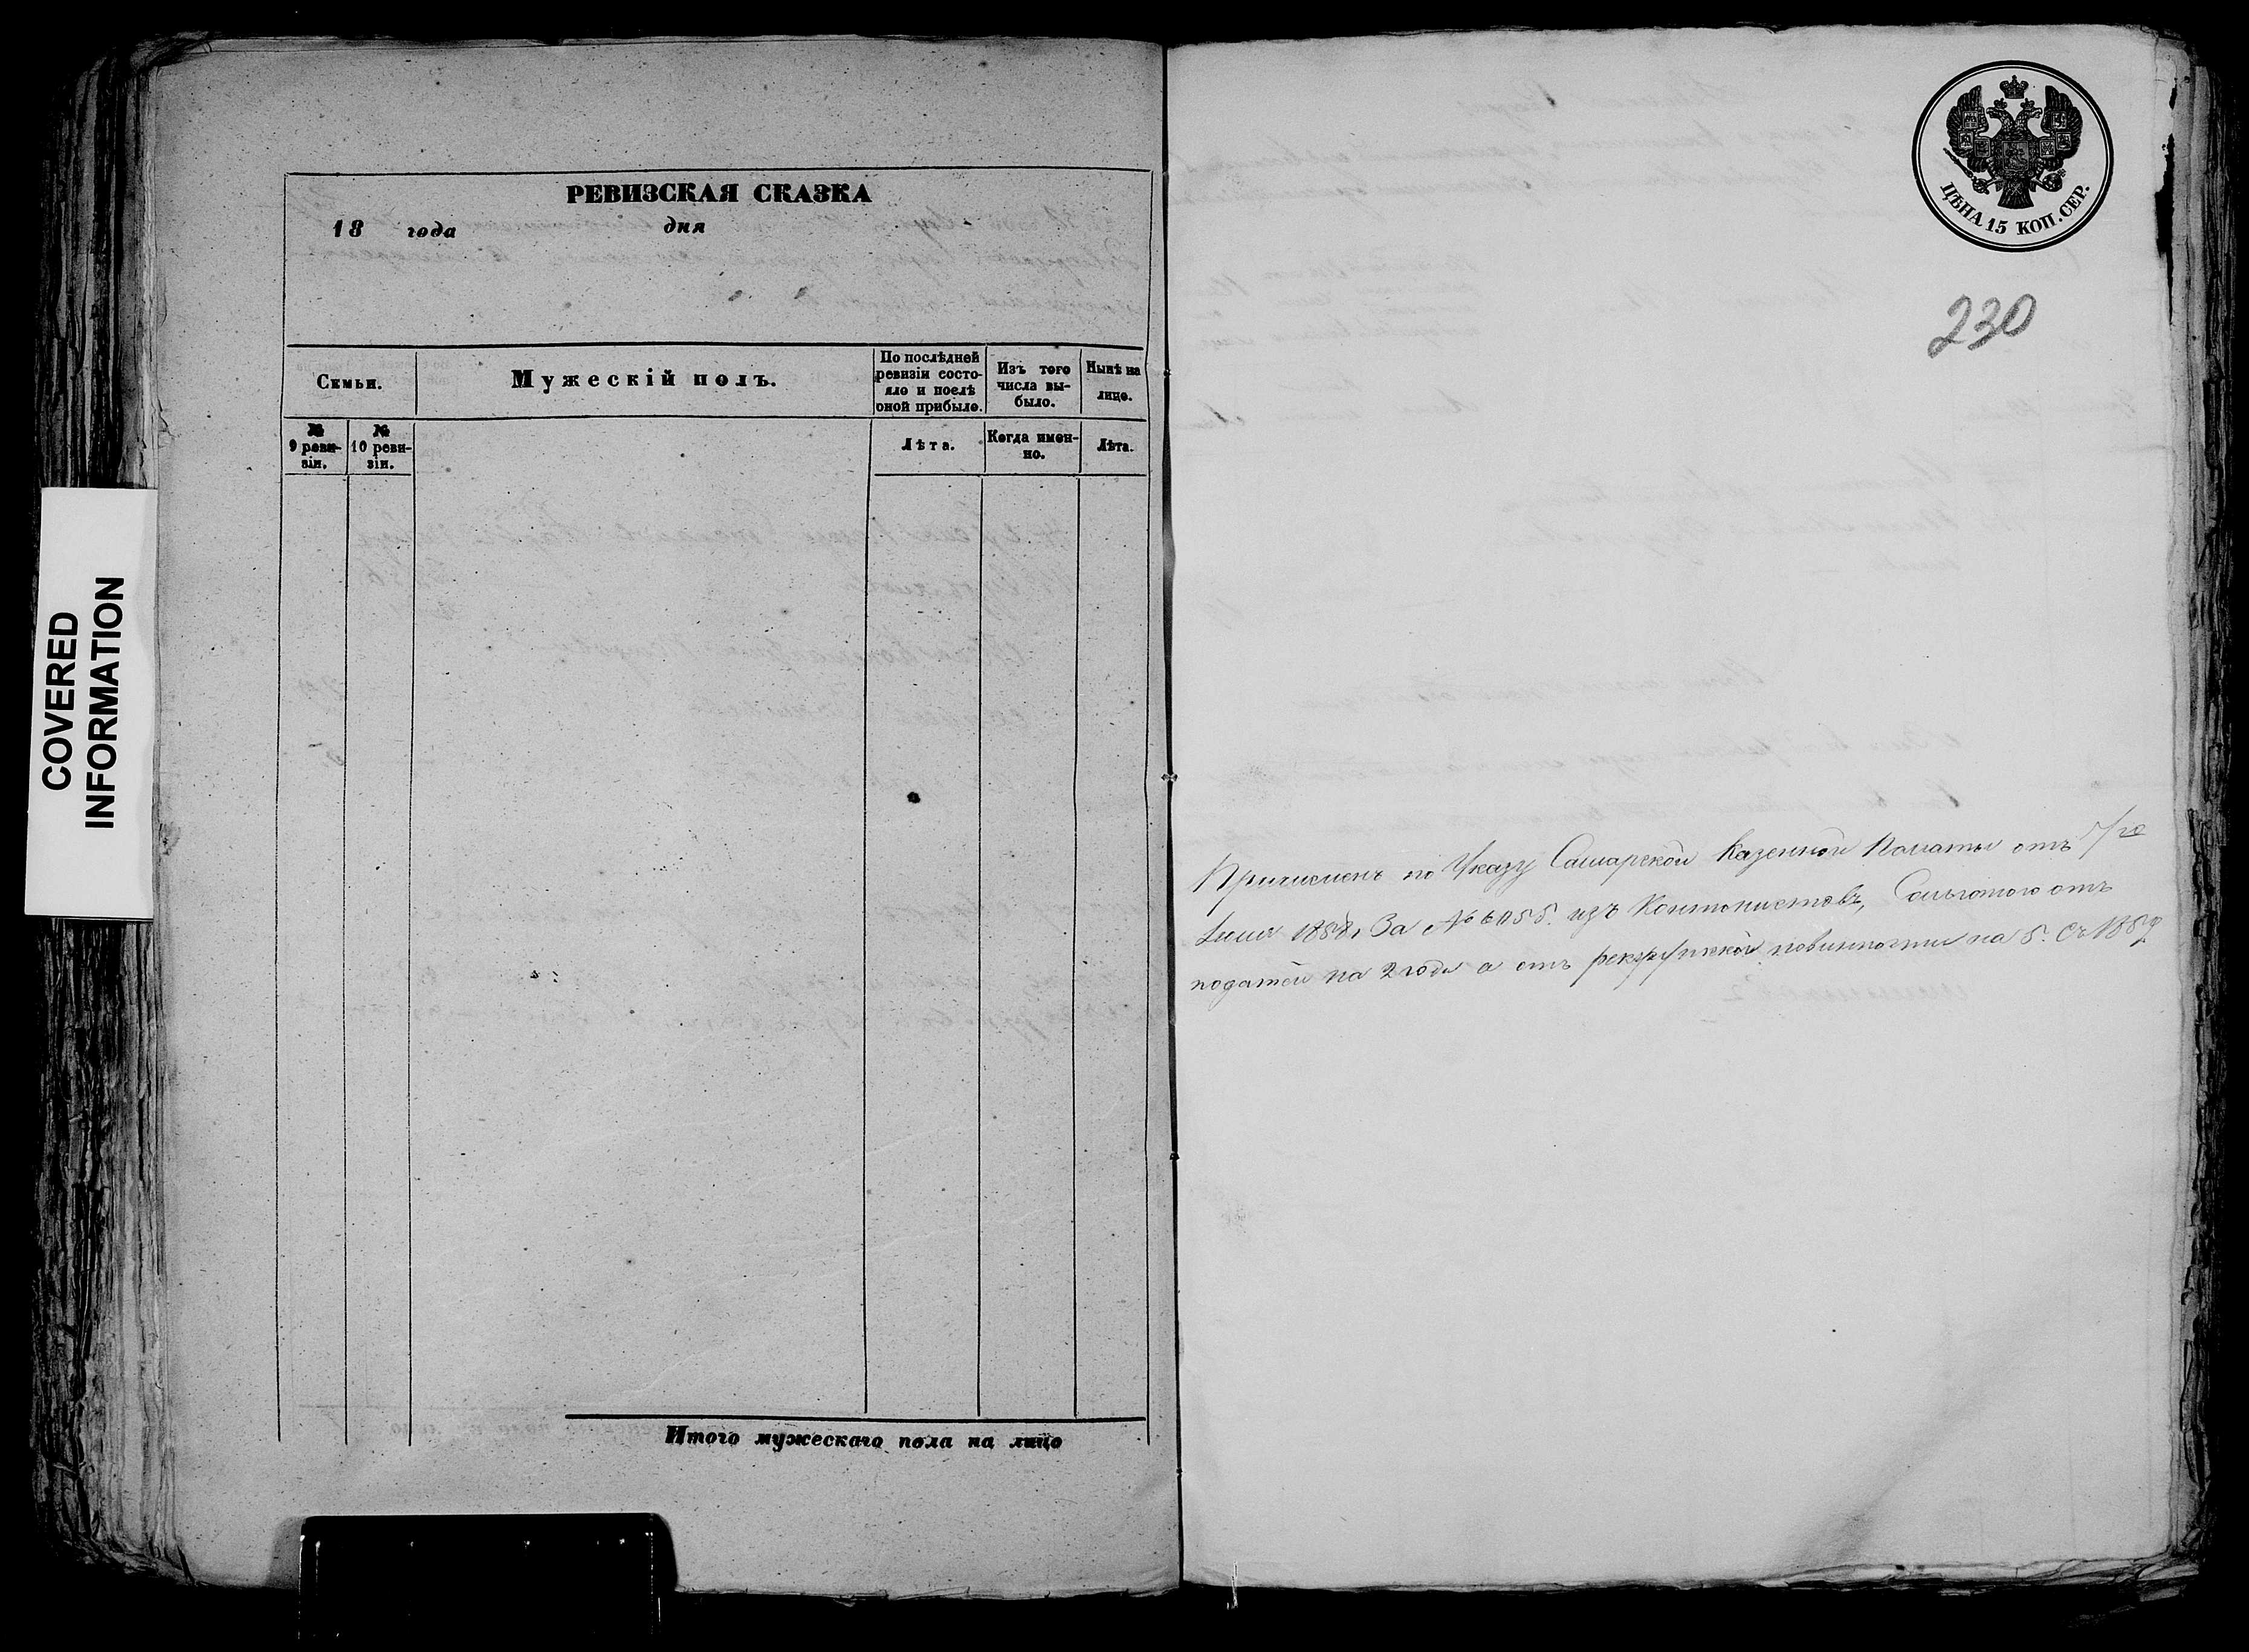 COVERED
INFORMATION
РЕВИЗСКАЯ СКАЗКА
18 года дня
Семьи.
Мужескій полъ.
По послѣдней
ревизіи состо-
яло и послѣ
оной прибыло.
Изъ того
числа вы-
было.
Нынѣ на
лицо.
№
9 реви-
зіи.
№
10 реви-
зіи.
Лѣта.
Когда имен-
но.
Лѣта.
Итого мужескаго пола на лицо
ЦѢНА 15 КОП. СЕР.
230
Причисленъ по Указу Самарской Казенной Палаты отъ
1858 За № изъ Кантонистовъ, Сльготою отъ
податей на 2 года а отъ рекрутской повинности на 5. Съ 1859